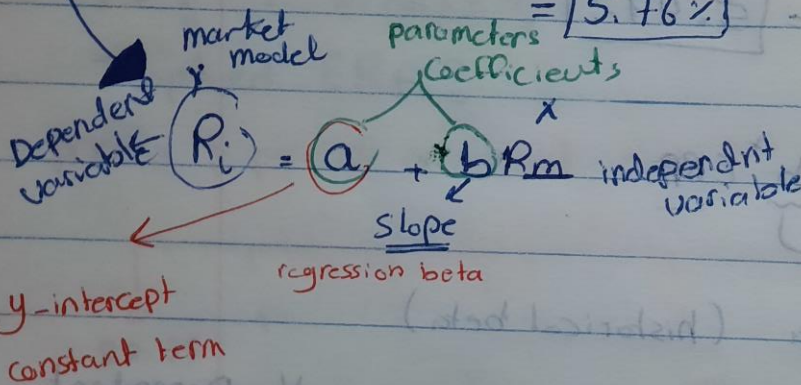 = 15.76%
market
model
parameters
Coefficients
Dependent
variable
Y
X
Ri = a + b Rm independnt
variable
slope
regression beta
y-intercept
constant term
(historical beta)